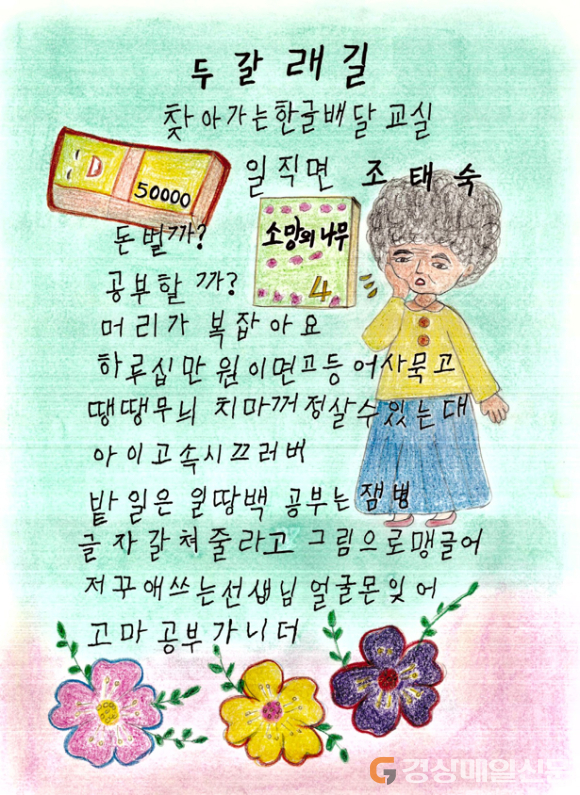 두 갈래길
찾아가는 한글배달 교실
일직면 조태숙
D
50000
소망의 나무
4
돈 벌까?
공부할까?
머리가 복잡아요
하루십만 원이면고등어사묵고
땡땡무늬 치마꺼정살수있는대
아이고속시끄러버
밭 일은 일땅백 공부는잼병
글자갈쳐줄라고 그림으로맹글어
저꾸애쓰는선생님 얼굴몬잊어
고마 공부가니더
경상매일신문